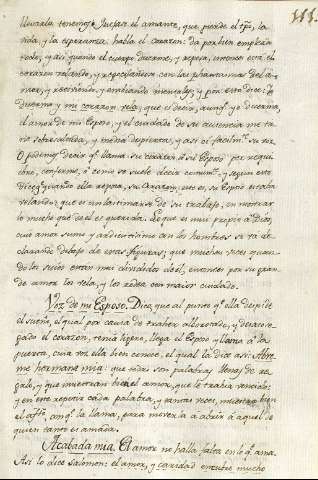 111.
llevarla, tenemos, Juzga el amante, que pierde el tpõ, la
vida, y la esperanza habla el corazon: da por bien empleado
todo; y asi quando el cuerpo duerme, y reposa, entonces está el
corazon velando, y negociando con las phantasmas del a-
mor, y recibiendo, y embiando mensages; y por esto dice: Yo
duermo y mi corazon vela, que es decir, aunqᵉ yo duermo,
el amor de mi Esposo, y el cuidado de su ausencia me tra
sobresaltada, y medio despierta; y asi oi facilmᵗᵉ su voz.
O podemos decir qᵉ llama su corazon á su Esposo por requie-
bro, conforme, á como se suele decir comunmᵗᵉ, y segun esto
dice qᵉ quando ella reposa, su corazon, esto es, su Esposo estaba
velando: que es un lastimarse de su trabajo, en mostrar
lo mucho que de él es querida. Lo que es muy propio á Dios,
cuio amor sumo, y ardentisimo con los hombres se vá de-
clarando debajo de estas figuras; que muchas veces quan-
do los suios estan mas olvidados de él, entonces por su gran-
de amor los vela, y los rodea con maior cuidado.
Voz de mi Esposo. Dice, que al punto qᵉ ella despide
el sueño, el qual por causa de traher alborotado, y desasose-
gado el corazon, tenia ligero, llega el Esposo y llama á la
puerta, cuia voz ella bien conoce, el qual la dice asi: Abre-
me hermana mia: que todas son palabras llenas de re-
galo, y que muestran bien el amor, que le trahia vencido;
y en este repetir cada palabra, y tantas veces, muestra bien
el aftõ, conqᵉ la llama, para moverla á abrir á aquel de
quien tanto es amada.
Acabada mia. El amor no halla falta en lo qᵉ ama.
Asi lo dice Salomon: el amor, y caridad encubre mucho